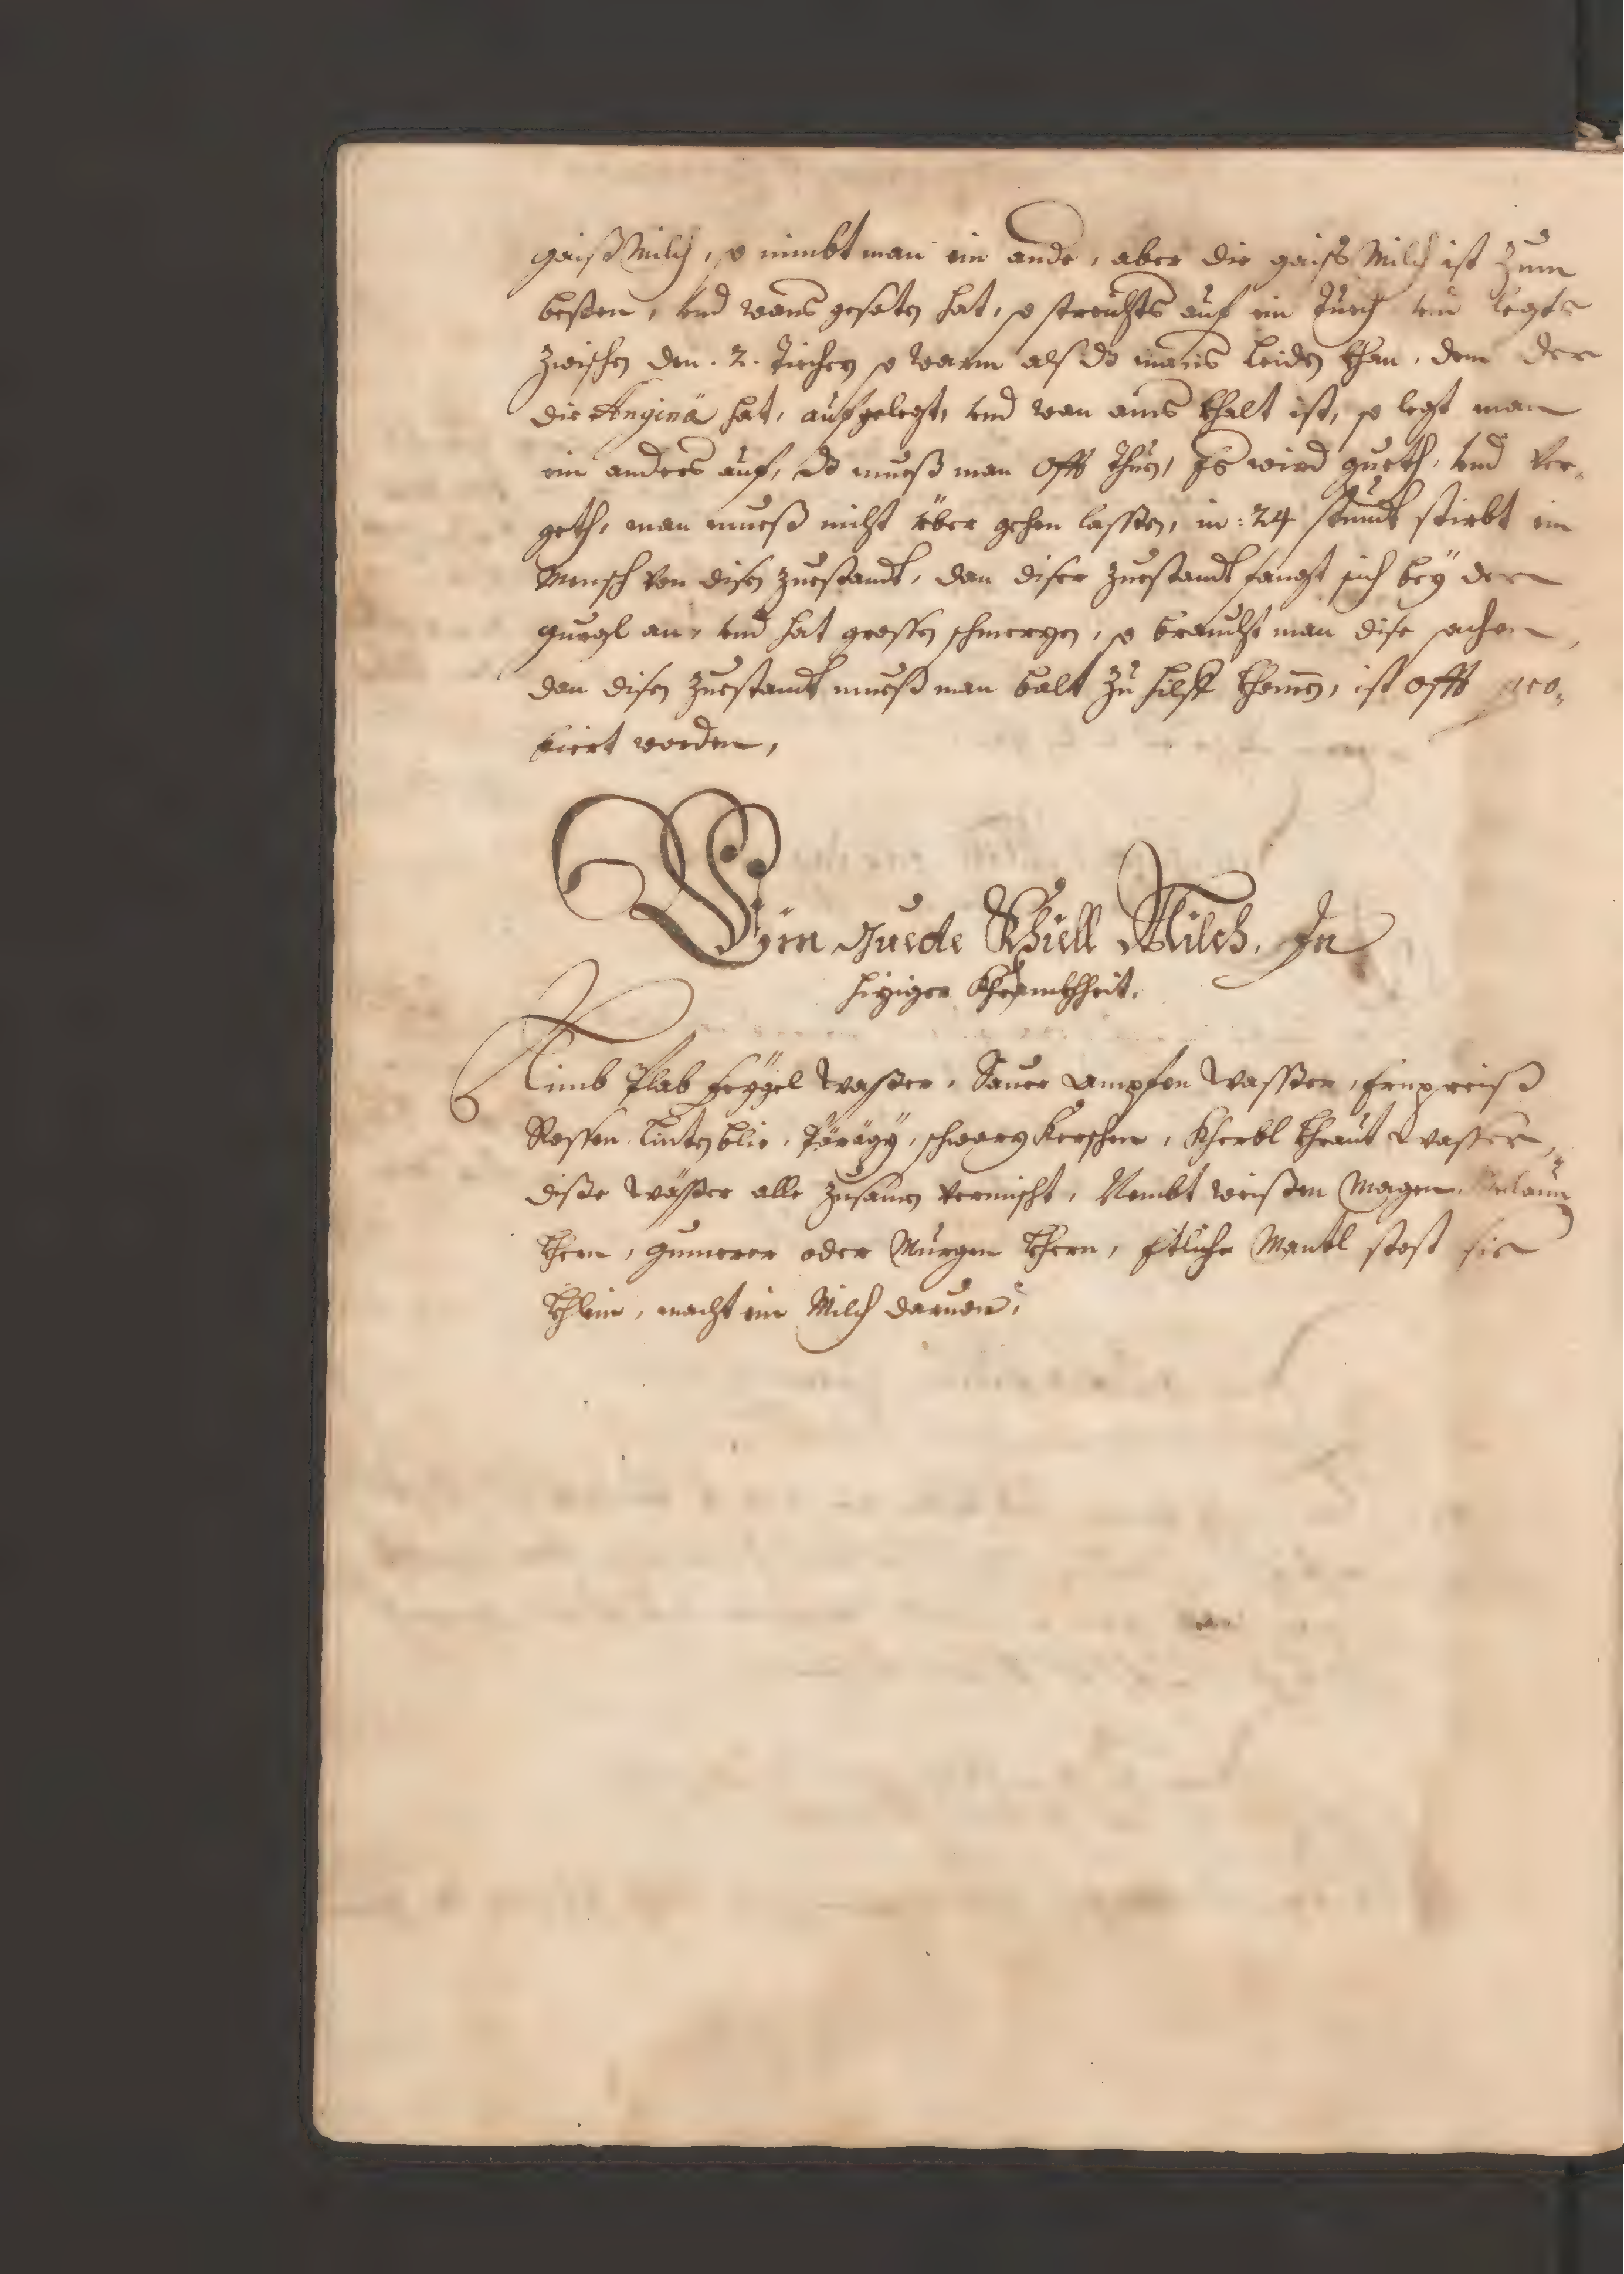 gaiß Milch, so nimbt man ein ande, aber die gaiß Milch ist zum
besten, vnd wans gesoten hat, so streichts auf ein Tuech vnd legts
zwischen den .2. Tiechen so warm als do mans leiden khan, dem der
die Anginä hat, aufgelegt, vnd wan ains khalt ist, so legt man
ein anders auf, do mueß man offt thuen, Es wird gueth, vnd ver-
geth, man mueß nicht über gehen lassen, in: 24 stundt stirbt ein
Mensch von disen zuestandt, dan diser zuestandt fangt sich bey der
gurgl an, vnd hat grossen schmerzen, so braucht man dise sachen,
dan disen zuestandt mueß man balt zu hilff khomen, ist offt pro-
biert worden,
Ein Guede Khiell Milch. In
hiziger Khrankhheit.
Nimb Plab feygel wasser, Sauer ampfen wasser, Ernpreiß
Rossen, Linten blie, schwarz Kerschen, Kherbl khraut wasser,
diße wässer alle zusamen vermischt, Nembt weissen Magen,
khern, gumerer oder Murgen khern, Etliche Mantl stost sie
khlein, macht ein Milch daruon,